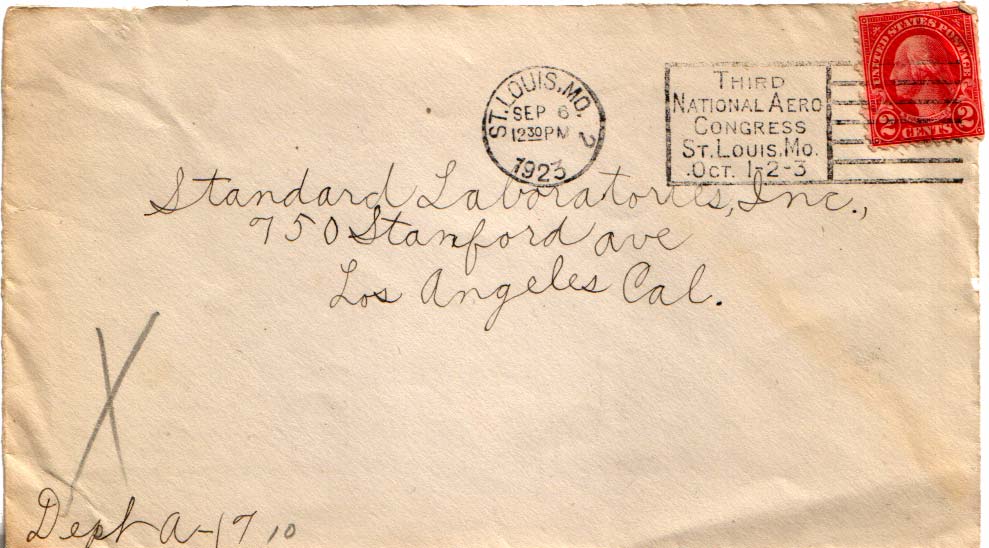 ST. LOUIS, MO. 2
SEP 6
12 30 PM
1923
THIRD
NATIONAL AERO
CONGRESS
ST. LOUIS, MO.
OCT. 1-2-3
UNITED STATES POSTAGE
2 CENTS 2
Standard Laboratories, Inc.,
750 Stanford ave
Los Angeles Cal.
X
Dept A-1710